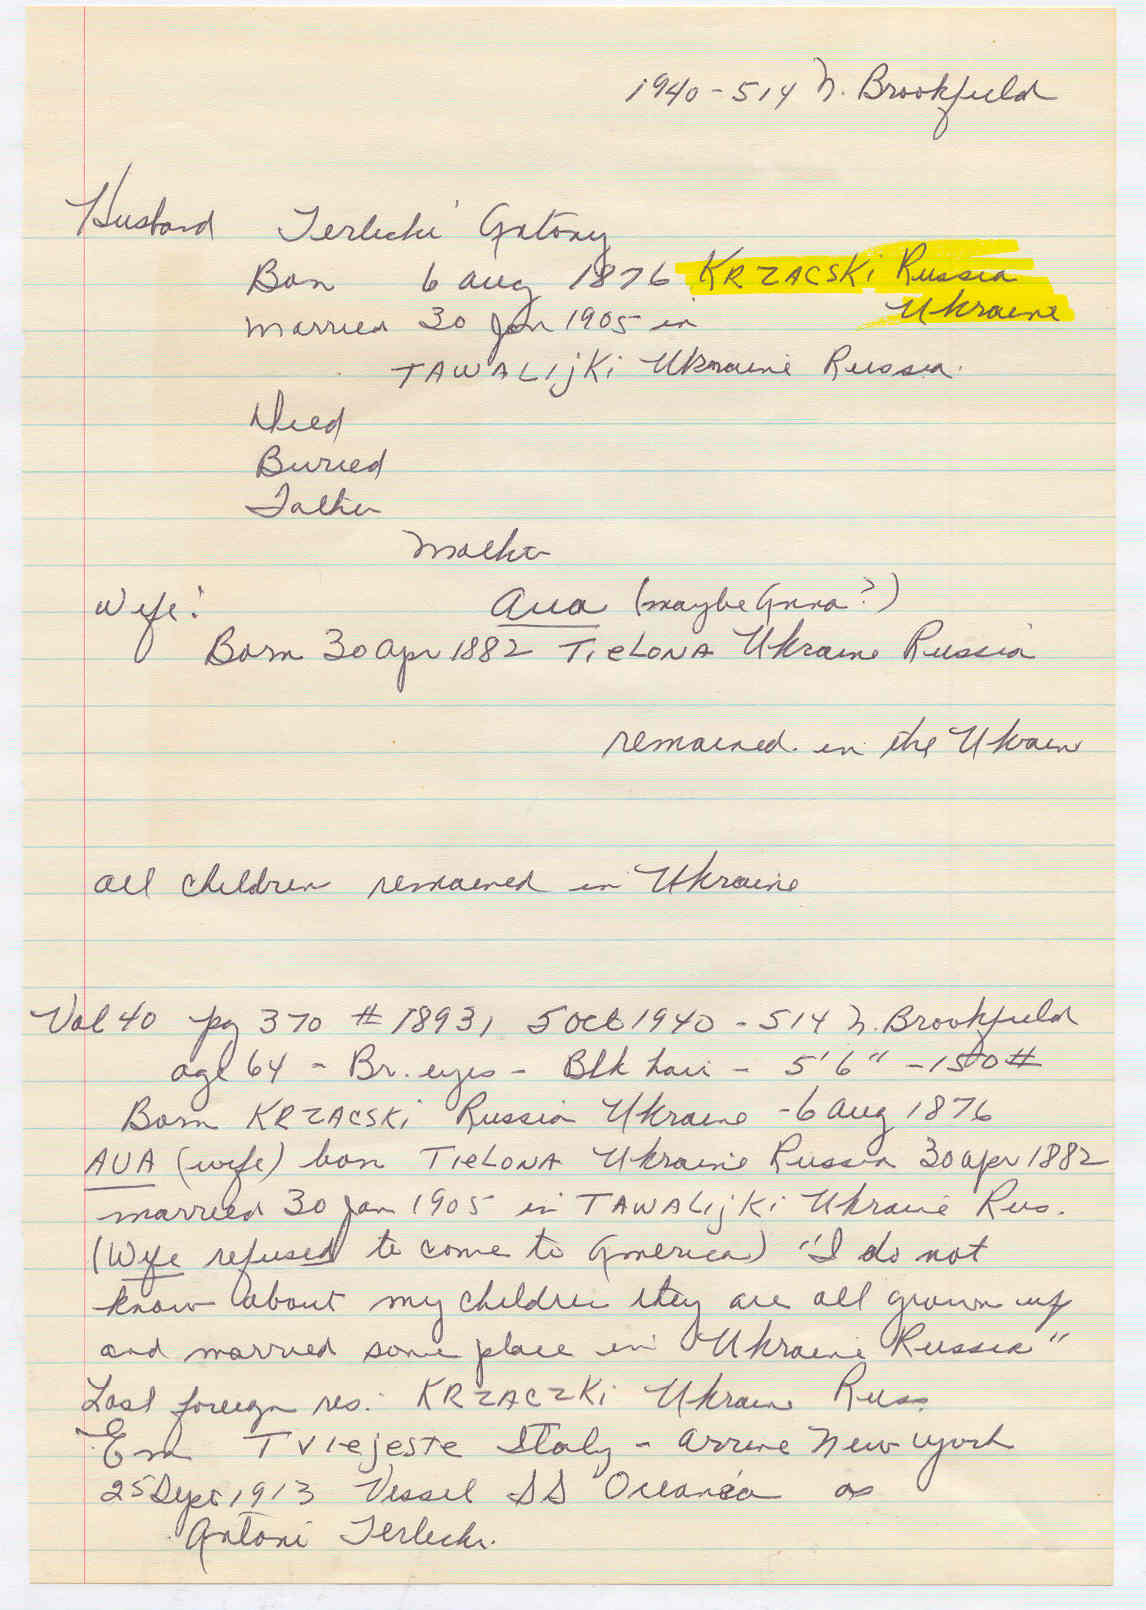 1940-514 N. Brookfield
Husband Terlecki Antony
Born 6 Aug 1876 KRZACSKi Russia
Ukraine
married 30 Jan 1905 in
TAWALIjKi Ukraine Russia.
Died
Buried
Father
Mother
Wife: Aua (maybe Anna?)
Born 30 Apr 1882 TieLONA Ukraine Russia
remained in the Ukraine
all children remained in Ukraine
Vol 40 pg 370 # 18931 5 Oct 1940 - 514 N. Brookfield
age 64 - Br. eyes - Blk hair - 5'6" - 150#
Born KRZACSKi Russia Ukraine - 6 Aug 1876
AUA (wife) born TieLONA Ukraine Russia 30 Apr 1882
married 30 Jan 1905 in TAWALijKi Ukraine Rus.
(Wife refused to come to America) "I do not
know about my children they are all grown up
and married some place in Ukraine Russia"
Last foreign res. KRZACZKi Ukraine Russ
Em TViejeste Italy - arrive New York
25 Sept 1913 Vessel SS Oceania as
Antoni Terlecki.